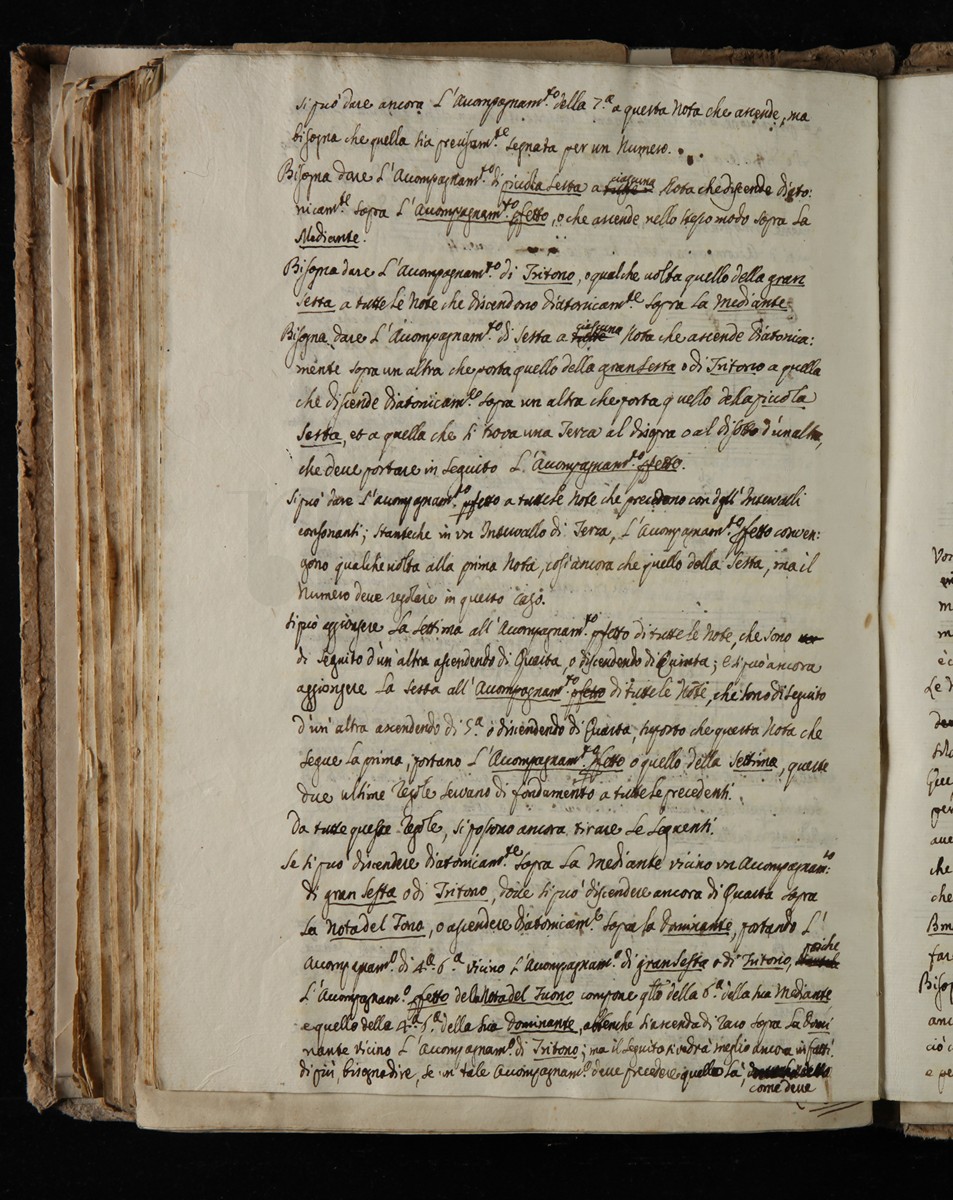 si può dare ancora L'Acompagnam.to della 7.a a questa Nota che ascende, ma
bisogna che quella sia precisam.te segnata per un Numero.
Bisogna dare L'Acompagnam.to di piccola Sesta a ciascuna Nota che discende diato:
nicam.te sopra L'Acompagnam.to pfetto, o che ascende nello stesso modo sopra La
Mediante.
Bisogna dare L'Acompagnam.to di Tritono, o qualche volta quello della gran
Sesta a tutte Le Note che discendono diatonicam.te sopra La Mediante.
Bisogna dare L'Acompagnam.to di Sesta a ciascuna Nota che ascende Diatonica:
mente sopra un altra che porta quello della gran Sesta o di Tritono a quella
che discende diatonicam.te sopra un altra che porta quello della piccola
Sesta, et a quella che si trova una Terza al disopra o al disotto d'un altra,
che deve portare in seguito L'Acompagnam.to pfetto.
Si può dare L'acompagnam.to pfetto a tutte le Note che precedono con degl'Intervalli
consonanti; stanteche in un Intervallo di Terza, L'Acompagnam.to pfetto conven:
gono qualche volta alla prima Nota, così ancora che quello della Sesta, ma il
Numero deve regolare in questo caso.
Si può aggiongere La Settima all'Acompagnam.to pfetto di tutte le Note, che sono
di seguito d'un'altra ascendendo di Quarta, o discendendo di Quinta; e si può ancora
aggiongere La Sesta all'Acompagnam.to pfetto di tutte le Note, che sono di seguito
d'un'altra ascendendo di 5.a o discendendo di Quarta, suposto che questa Nota che
segue La prima, portano L'Acompagnam.to pfetto o quello della Settima, queste
due ultime Regole servano di fondamento a tutte le precedenti.
Da tutte queste Regole, si possono ancora tirare Le seguenti.
Se si può discendere diatonicam.te sopra La Mediante vicino un Acompagnam:to
di gran Sesta o di Tritono, si può discendere ancora di Quarta sopra
La Nota del Tono, o ascendere diatonicam.te sopra la dominante, portando L'
Acompagnam.o di 4.a 6.a vicino L'Acompagnam.o di gran Sesta o di Tritono, poiche
L'Acompagnam.o pfetto della Nota del Tuono compone qllo della 6.a della sua Mediante
e quello della 4.a 6.a della sua Dominante, che s'ascenda di raro sopra La Domi
nante vicino L'Acompagnam.o di Tritono; ma il seguito s'ondrà meglio ancora infatti.
di più, bisogna dire, se un tale Acompagnam.o deve precedere quello Là,
come deve